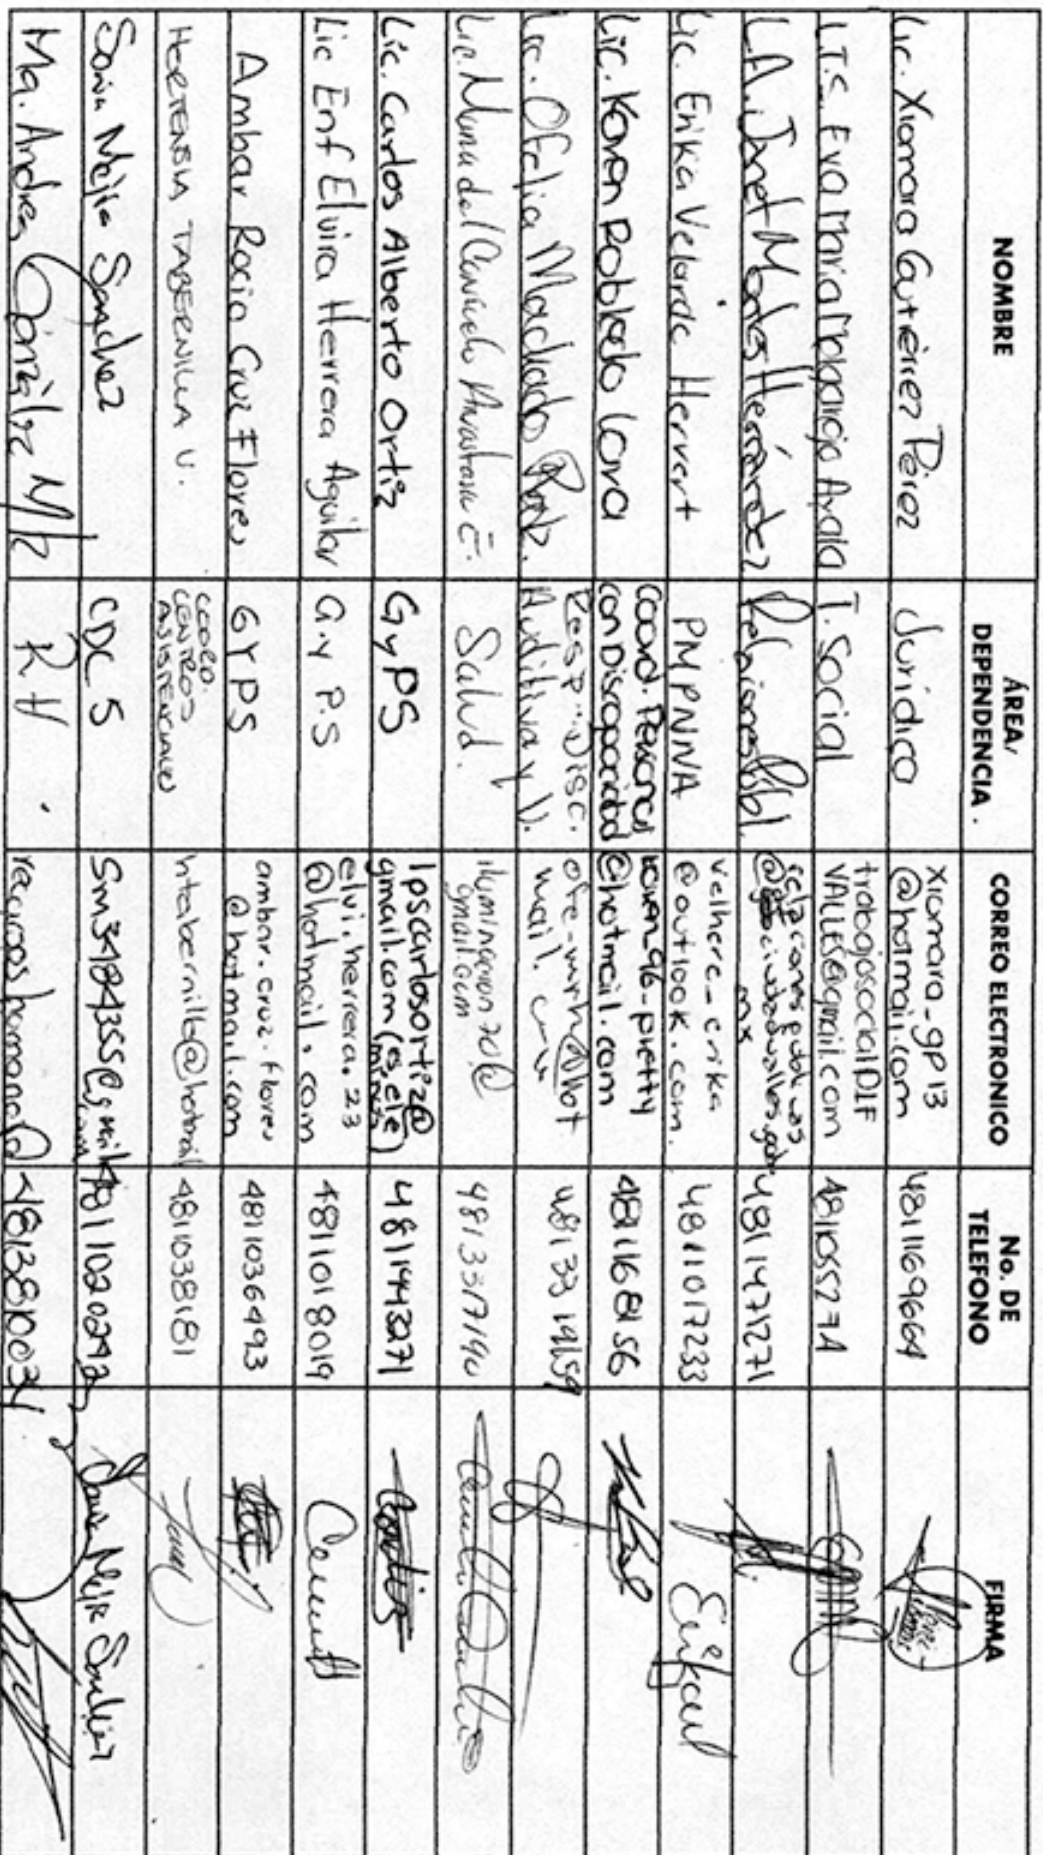 NOMBRE ÁREA/ DEPENDENCIA. CORREO ELECTRONICO No. DE TELEFONO FIRMA
Lic. Xiomara Gutiérrez Pérez Jurídico xiomara_gp13 @hotmail.com 4811169664
L.T.S. Eva María Melgarejo Ayala T. Social trabajosocialDIF VALLES@gmail.com 4810655274
L.A. Janet Morales Hernández Relaciones Públ. 4811471271
Lic. Erika Velarde Hervert PMPNNA velhere_erika @outlook.com. 4811017233
Lic. Karen Robledo Lara Coord. Personas con Discapacidad karen_96_pretty @hotmail.com 4811168156
Lic. Ofelia Machado Rodz. Resp. Disc. Auditiva y V.
Lic. Salud. 4813317190
Lic. Carlos Alberto Ortiz GyPS lpscarlosortiz@ gmail.com 4811443271
Lic Enf Elvira Herrera Aguilar G.y P.S elvi.herrera.23 @hotmail.com 4811018019
Ambar Rocio Cruz Flores GYPS ambar.cruz.flores @hotmail.com 4811036493
HORTENSIA TABERNILLA V. COORD. CENTROS ASISTENCIALES htabernilla@hotmail 4811038181
Sonia Mejía Sánchez CDC 5 4811020292
Ma. Andrea González Mtz RH. recursoshumanos@ 4813810034